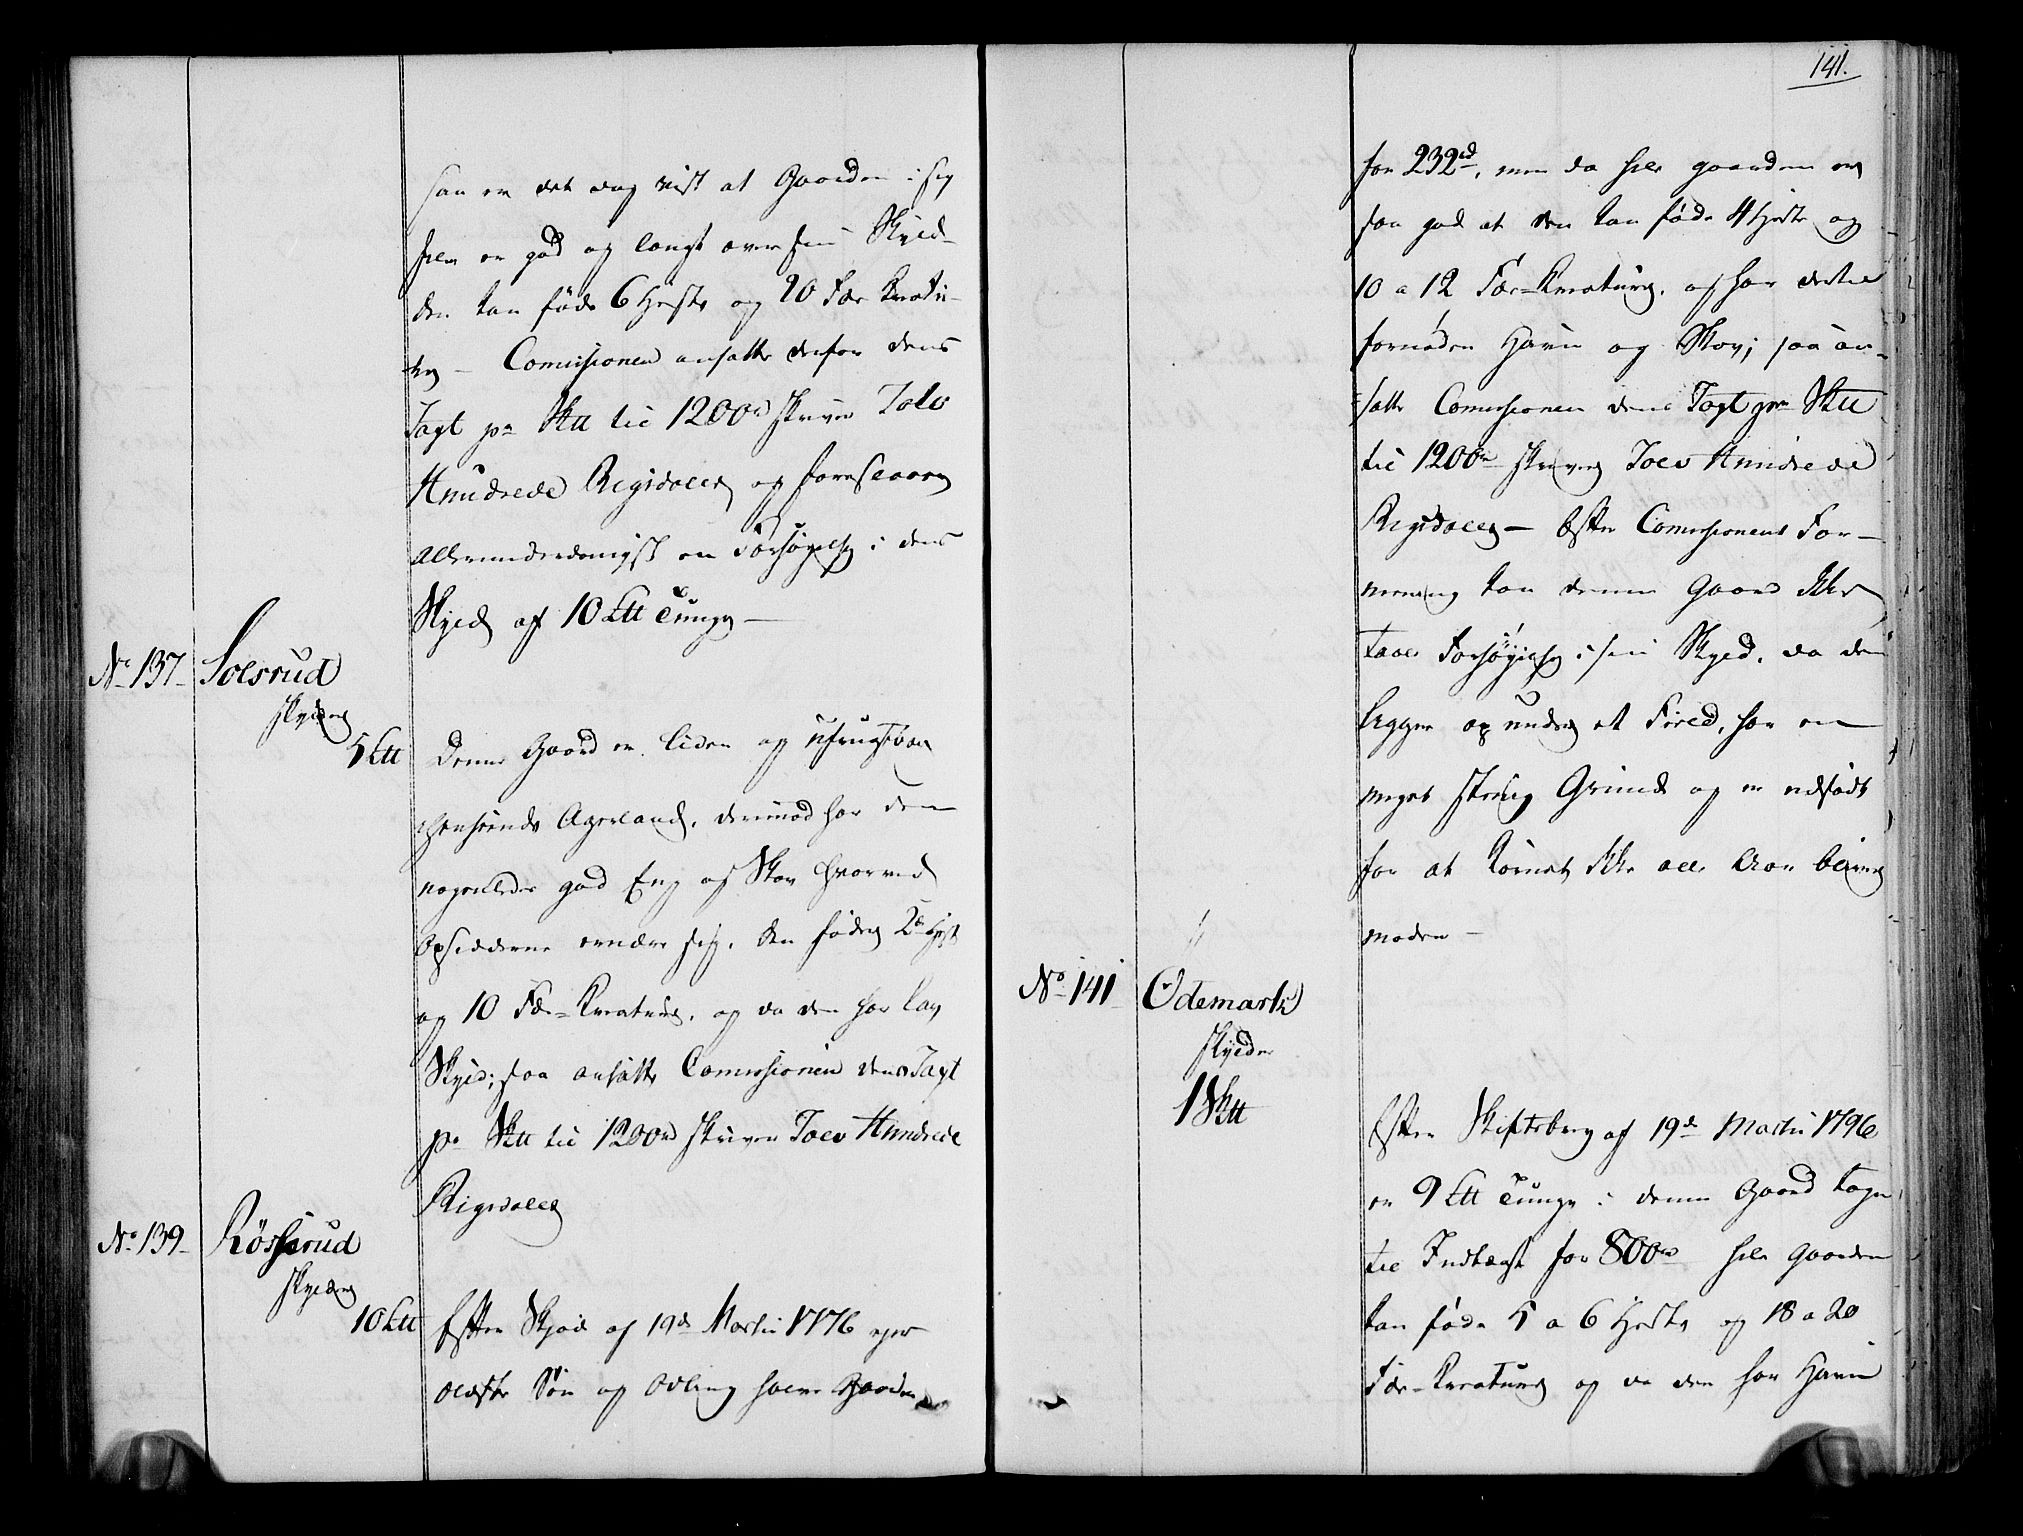 saa er det dog vist at Gaarden i sig
selv er god og langt over sin Skyld
den kan føde 6 Heste og 20 Fæe Creatu-
rer – Comissionen ansatte derfor dens
Taxt pr Skll til 1200rd skriver Tolv
Hundrede Rigsdaler og foreslaaer
allerunderdanigst en Forhøyelse i dens
Skyld af 10 Ltt Tunge –
No 137 Solsrud
skylder
5 Ltt
Denne Gaard er liden og ufrugtbar
henseende Agerland, derimod har den
nogenledes god Eng og Skov hvorved
Opsidderne ernærer sig, den føder 2de Heste
og 10 Fæe-Creature, og da den har lav
Skyld; saa ansatte Comissionen dens Taxt
pr Skll til 1200rd skriver Tolv Hundrede
Rigsdaler
No 139 Rösserud
skylder
10 Ltt
Efter Skjøde af 19de Martii 1776 ejer
ældste Søn og Odling halve Gaarden
141.
for 232rd, men da hele gaarden er
saa god at den kan føde 4 Heste og
10 a 12 Fæe-Creature, og har dertil
fornøden Havn og Skov; saa an-
satte Comissionen dens Taxt pr Skll
til 1200rd skriver Tolv Hundrede
Rigsdaler – Efter Comissionens For-
mening kan denne Gaard ikke
taale Forhøyelse i sin Skyld, da den
ligger op under et Field, har en
meget steenig Grund og er udsadt
for at Kornet ikke alle Aar bliver
moden –
No 141 Ödemark
skylder
1 Skll
Efter Skiftebrev af 19de Martii 1796
er 9 Ltt Tunge i denne Gaard tagen
til Indtægt for 800rd hele Gaarden
kan føde 5 a 6 Heste og 18 a 20
Fæe-Creature og da den har Havn